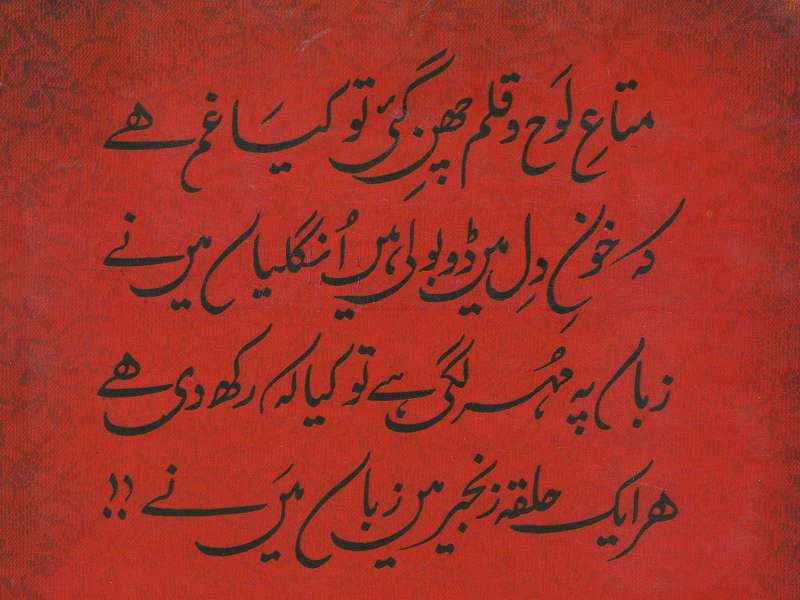 متاعِ لَوح و قلم چھِن گَئی تو کیَا غم ہے
کہ خونِ دِل میں ڈوبو لی ہیں اُنگلیاں میں نے
زباں پہ مُہر لگی ہے تو کیا کہ رکھ دی ہے
ہر ایک حلقہ زنجیر میں زباں میَں نے !!